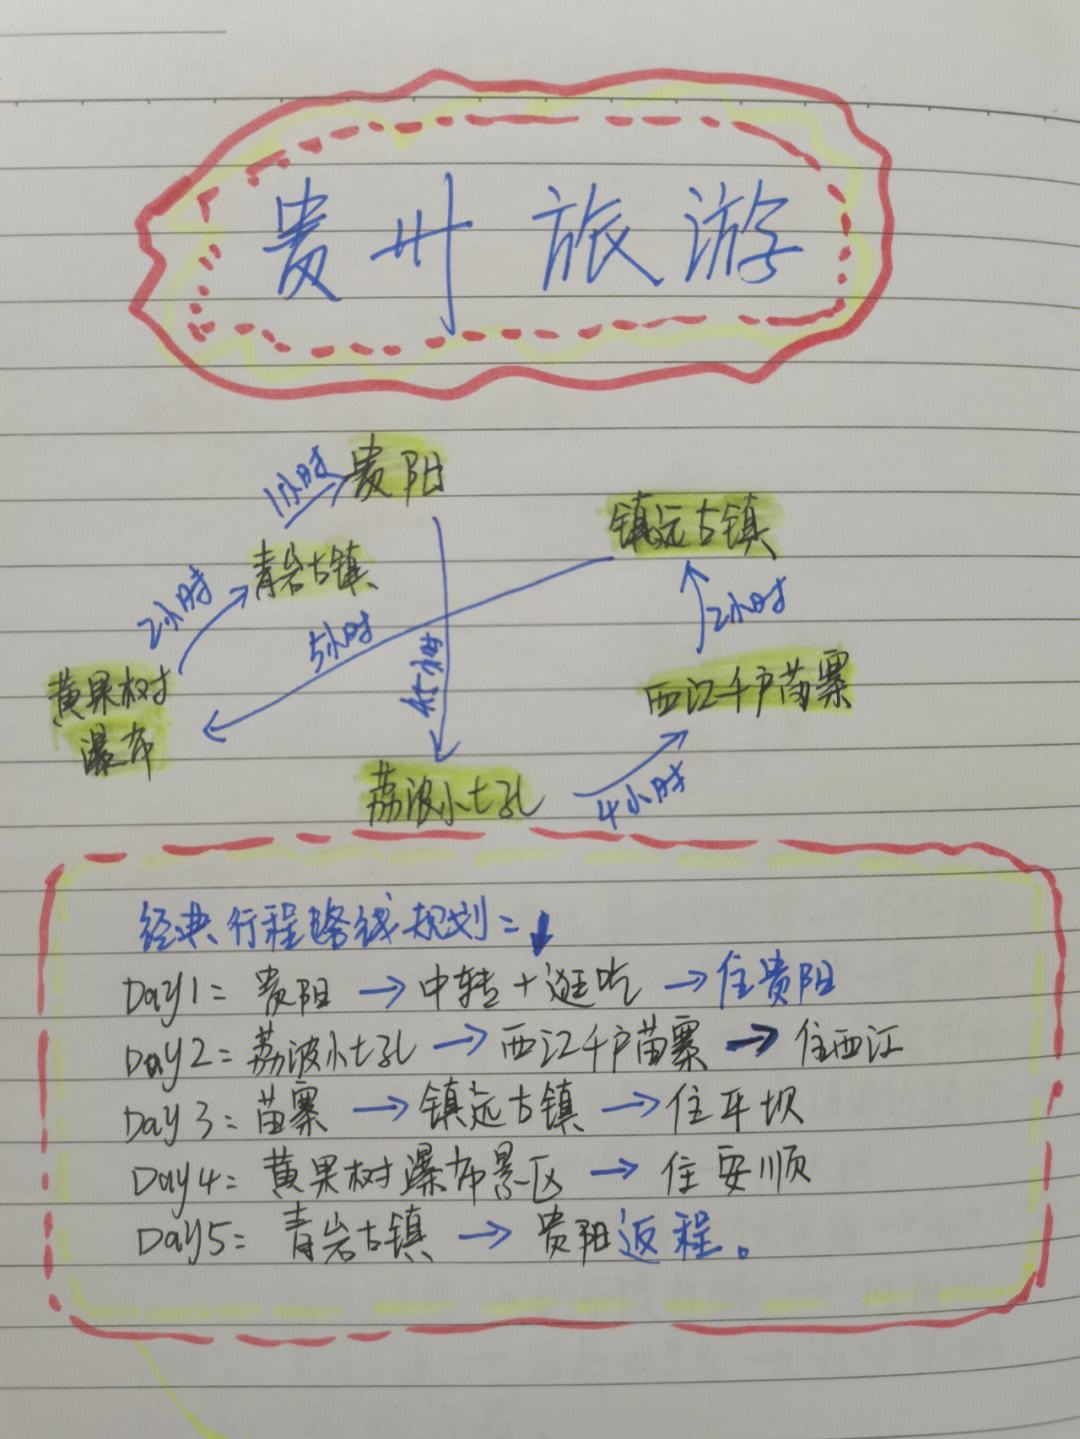 贵州旅游
1小时
贵阳
镇远古镇
青岩古镇
2小时
2小时
5小时
4.5小时
黄果树
瀑布
西江千户苗寨
荔波小七孔
4小时
经典行程路线规划:
Day1: 贵阳 → 中转+逛吃 → 住贵阳
Day2: 荔波小七孔 → 西江千户苗寨 → 住西江
Day3: 苗寨 → 镇远古镇 → 住平坝
Day4: 黄果树瀑布景区 → 住安顺
Day5: 青岩古镇 → 贵阳返程。